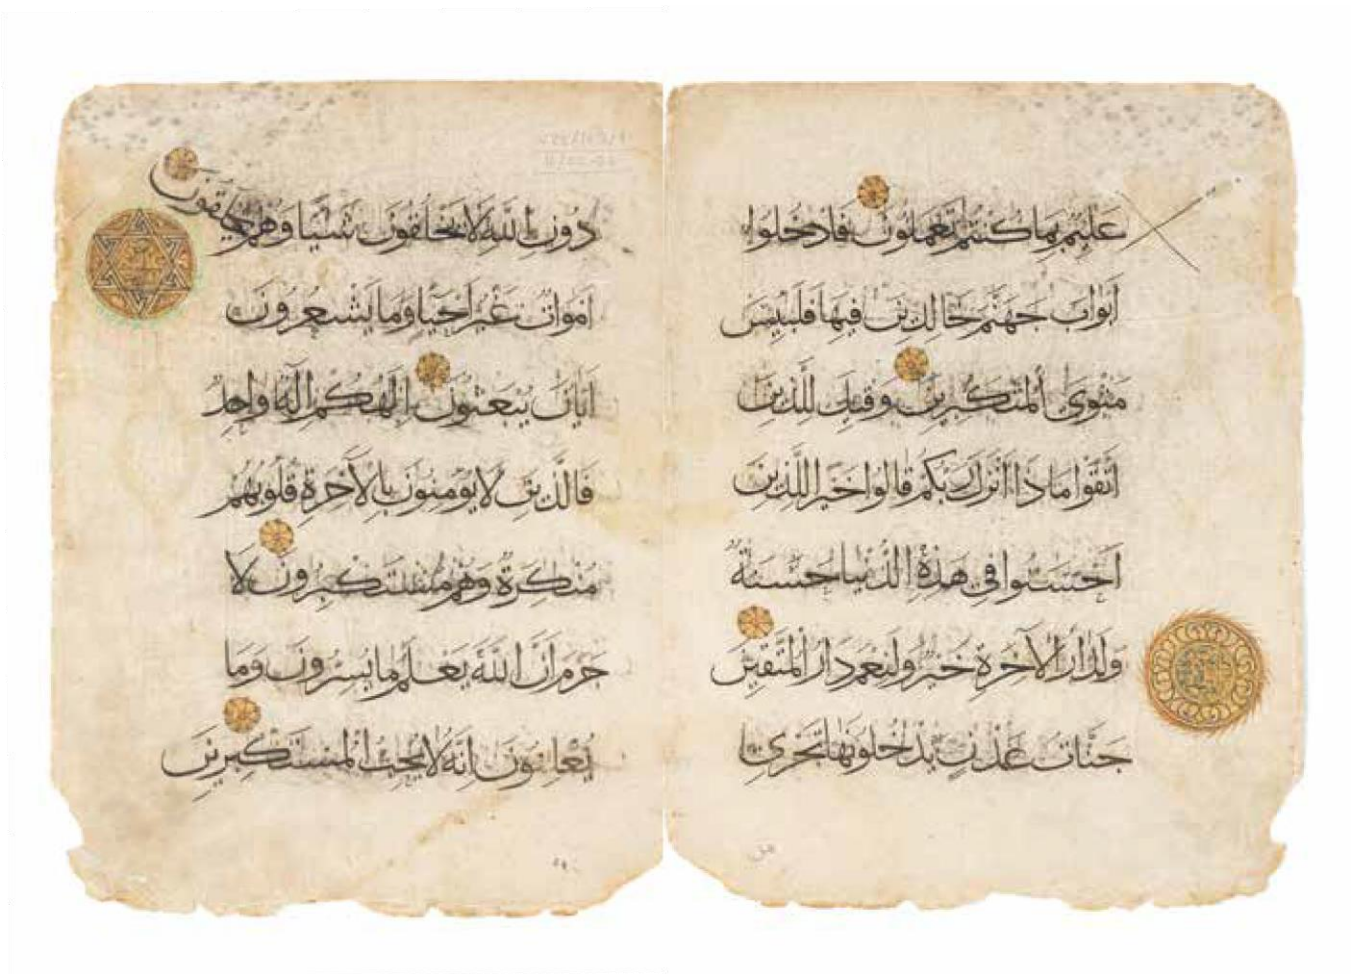 عَلِيمٌ بِمَا كُنْتُمْ تَعْمَلُونَ فَادْخُلُوا
اَبْوَابَ جَهَنَّمَ خَالِدِينَ فِيهَا فَلَبِيْسَ
مَثْوَى الْمُتَكَبِّرِينَ وَقِيلَ لِلَّذِينَ
اتَّقَوْا مَاذَا اَنْزَلَ رَبُّكُمْ قَالُوا خَيْرًا لِلَّذِينَ
اَحْسَنُوا فِي هَذِهِ الدُّنْيَا حَسَنَةٌ
وَلَدَارُ الْآخِرَةِ خَيْرٌ وَلَنِعْمَ دَارُ الْمُتَّقِينَ
جَنَّاتُ عَدْنٍ يَدْخُلُونَهَا تَجْرِي
دُونِ اللَّهِ لَا يَخْلُقُونَ شَيْئًا وَهُمْ يُخْلَقُونَ
اَمْوَاتٌ غَيْرُ اَحْيَاءٍ وَمَا يَشْعُرُونَ
اَيَّانَ يُبْعَثُونَ اِلَهُكُمْ اِلَهٌ وَاحِدٌ
فَالَّذِينَ لَا يُؤْمِنُونَ بِالْآخِرَةِ قُلُوبُهُمْ
مُنْكِرَةٌ وَهُمْ مُسْتَكْبِرُونَ لَا
جَرَمَ اَنَّ اللَّهَ يَعْلَمُ مَا يُسِرُّونَ وَمَا
يُعْلِنُونَ اِنَّهُ لَا يُحِبُّ الْمُسْتَكْبِرِينَ